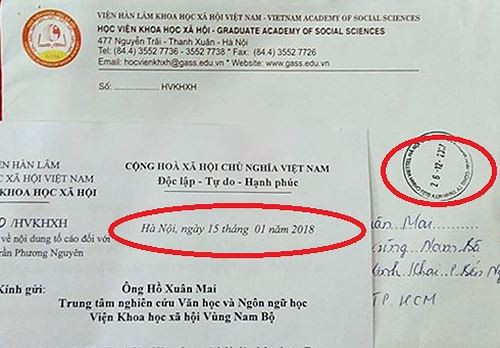 VIỆN HÀN LÂM KHOA HỌC XÃ HỘI VIỆT NAM - VIETNAM ACADEMY OF SOCIAL SCIENCES
HỌC VIỆN KHOA HỌC XÃ HỘI - GRADUATE ACADEMY OF SOCIAL SCIENCES
477 Nguyễn Trãi - Thanh Xuân - Hà Nội
Tel: (84.4) 3552 7736 - 3552 7738 * Fax: (84.4) 3552 7726
Email: hocvienkhxh@gass.edu.vn * Website: www.gass.edu.vn
Số: .................... HVKHXH
IỆN HÀN LÂM
C XÃ HỘI VIỆT NAM
KHOA HỌC XÃ HỘI
0 /HVKHXH
về nội dung tố cáo đối với
rần Phương Nguyên
CỘNG HOÀ XÃ HỘI CHỦ NGHĨA VIỆT NAM
Độc lập - Tự do - Hạnh phúc
Hà Nội, ngày 15 tháng 01 năm 2018
Kính gửi:
Ông Hồ Xuân Mai
Trung tâm nghiên cứu Văn học và Ngôn ngữ học
Viện Khoa học xã hội Vùng Nam Bộ
Mai
TP HCM